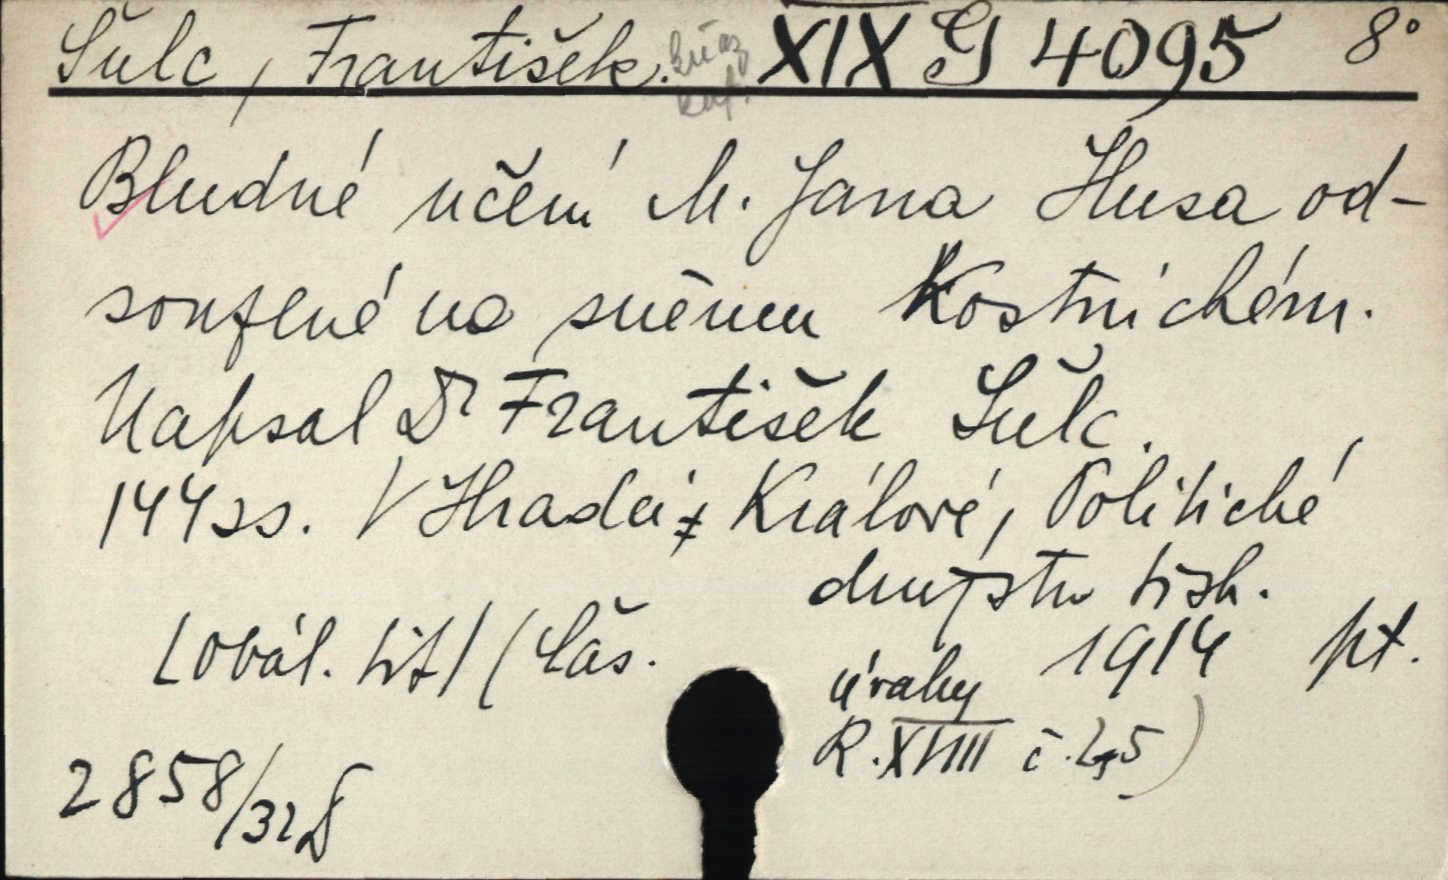 Šulc, František. XIX G 4095 8°
Bludné učení M. Jana Husa od-
souzené na sněmu Kostnickém.
Napsal Dr František Šulc.
144 ss. V Hradci Králové, Politické
družstvo tisk.
(obál. tit) (Čas. 1914 pt.
úvahy
R. XVIII č. 4,5)
2858/32 D